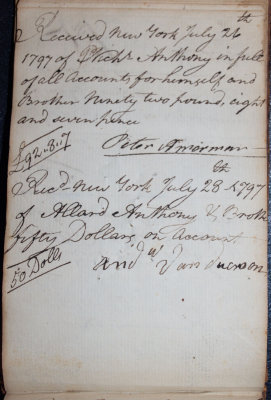 Received New York July 26th
1797 of Nichs Anthony in full
of all Accounts for himself and
Brother Ninety two pound, eight
and seven pence
£92.8.7
Peter Amerman
Recd New York July 28th 1797
of Allard Anthony & Broth
fifty Dollars on Account
50 Dolls
andw Van